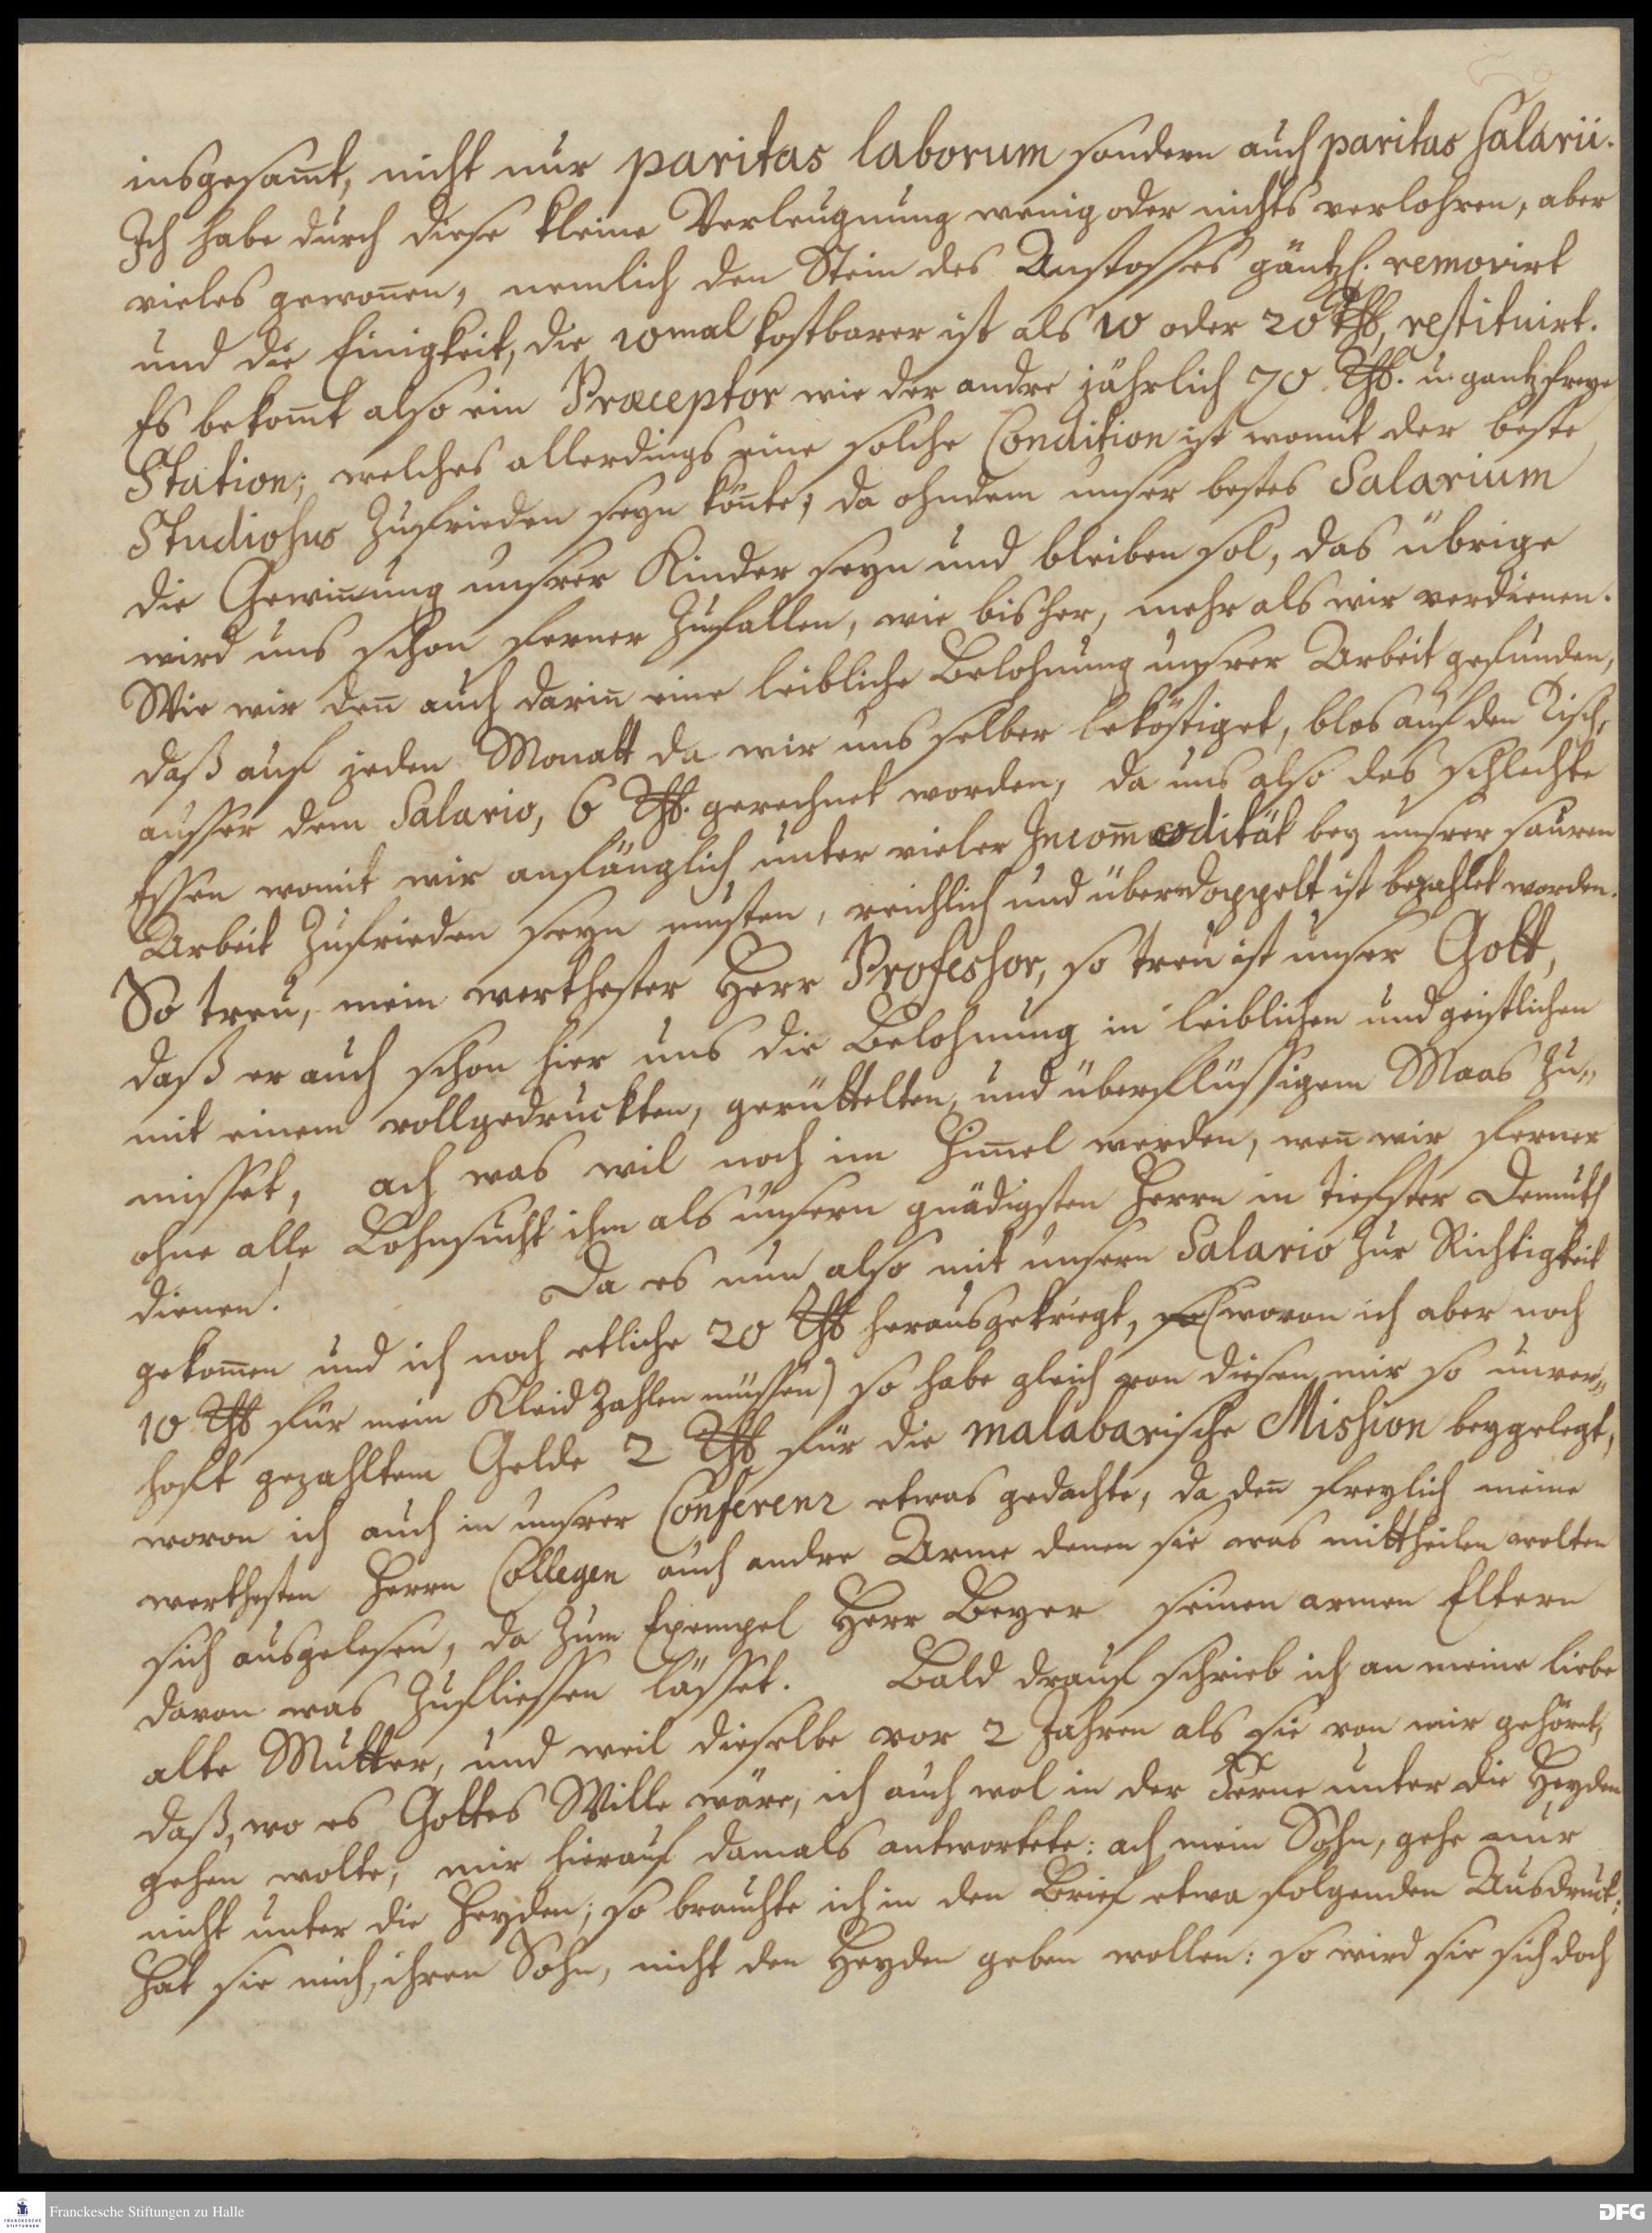 insgesam̅t, nicht nur paritas laborum sondern auch paritas salarii.
Ich habe durch diese kleine Verleugnung wenig oder nichts verlohren, aber
vieles gewon̅en, nemlich den Stein des Anstosses gäntzl. removirt
und die Einigkeit, die 10mal kostbarer ist als 10 oder 20 Thlr, restituirt.
Es bekom̅t also ein Præceptor wie der andre jährlich 70 Thlr. u. gantz freye
Station; welches allerdings eine solche Condition ist womit der beste
Studiosus zufrieden seyn kön̅te; da ohndem unser bestes Salarium
die Gewin̅ung unsrer Kinder seyn und bleiben sol, das übrige
wird uns schon ferner zufallen, wie bisher, mehr als wir verdienen.
Wie wir den̅ auch darin̅ eine leibliche Belohnung unsrer Arbeit gefunden,
daß auf jeden Monatt da wir uns selber beköstiget, blos auf den Tisch,
ausser dem Salario, 6 Thlr. gerechnet worden, da uns also das schlechte
Essen womit wir anfänglich unter vieler Incom̅odität bey unsrer sauren
Arbeit zufrieden seyn musten, reichlich und überdoppelt ist bezahlet worden.
So treu, mein werthester Herr Professor, so treu ist unser Gott,
daß er auch schon hier uns die Belohnung in leiblichen und geistlichen
mit einem vollgedruckten, gerüttelten, und überflüssigem Maas zu„
misset, ach was wil noch im Him̅el werden, wen̅ wir ferner
ohne alle Lohnsucht ihm als unserm gnädigsten Herrn in tiefster Demuth
dienen! Da es nun also mit unserm Salario zur Richtigkeit
gekom̅en und ich noch etliche 20 Thlr herausgekriegt, (wovon ich aber noch
10 Thlr für mein Kleid zahlen müssen) so habe gleich von diesen mir so unver„
hoft gezahltem Gelde 2 Thlr für die malabarische Mission beygelegt,
wovon ich auch in unsrer Conferenz etwas gedachte, da den̅ freylich meine
werthesten Herrn Collegen auch andre Arme denen sie was mittheilen wolten
sich ausgelesen, da zum Exempel Herr Beyer seinen armen Eltern
davon was zufliessen lässet. Bald drauf schrieb ich an meine liebe
alte Mutter, und weil dieselbe vor 2 Jahren als sie von mir gehöret,
daß, wo es Gottes Wille wäre, ich auch wol in der Ferne unter die Heyden
gehen wolte, mir hierauf damals antwortete: ach mein Sohn, gehe nur
nicht unter die Heyden; so brauchte ich in den Brief etwa folgenden Ausdruck:
Hat sie mich, ihren Sohn, nicht den Heyden geben wollen: so wird sie sich doch
Franckesche Stiftungen zu Halle
FRANCKESCHE STIFTUNGEN
DFG